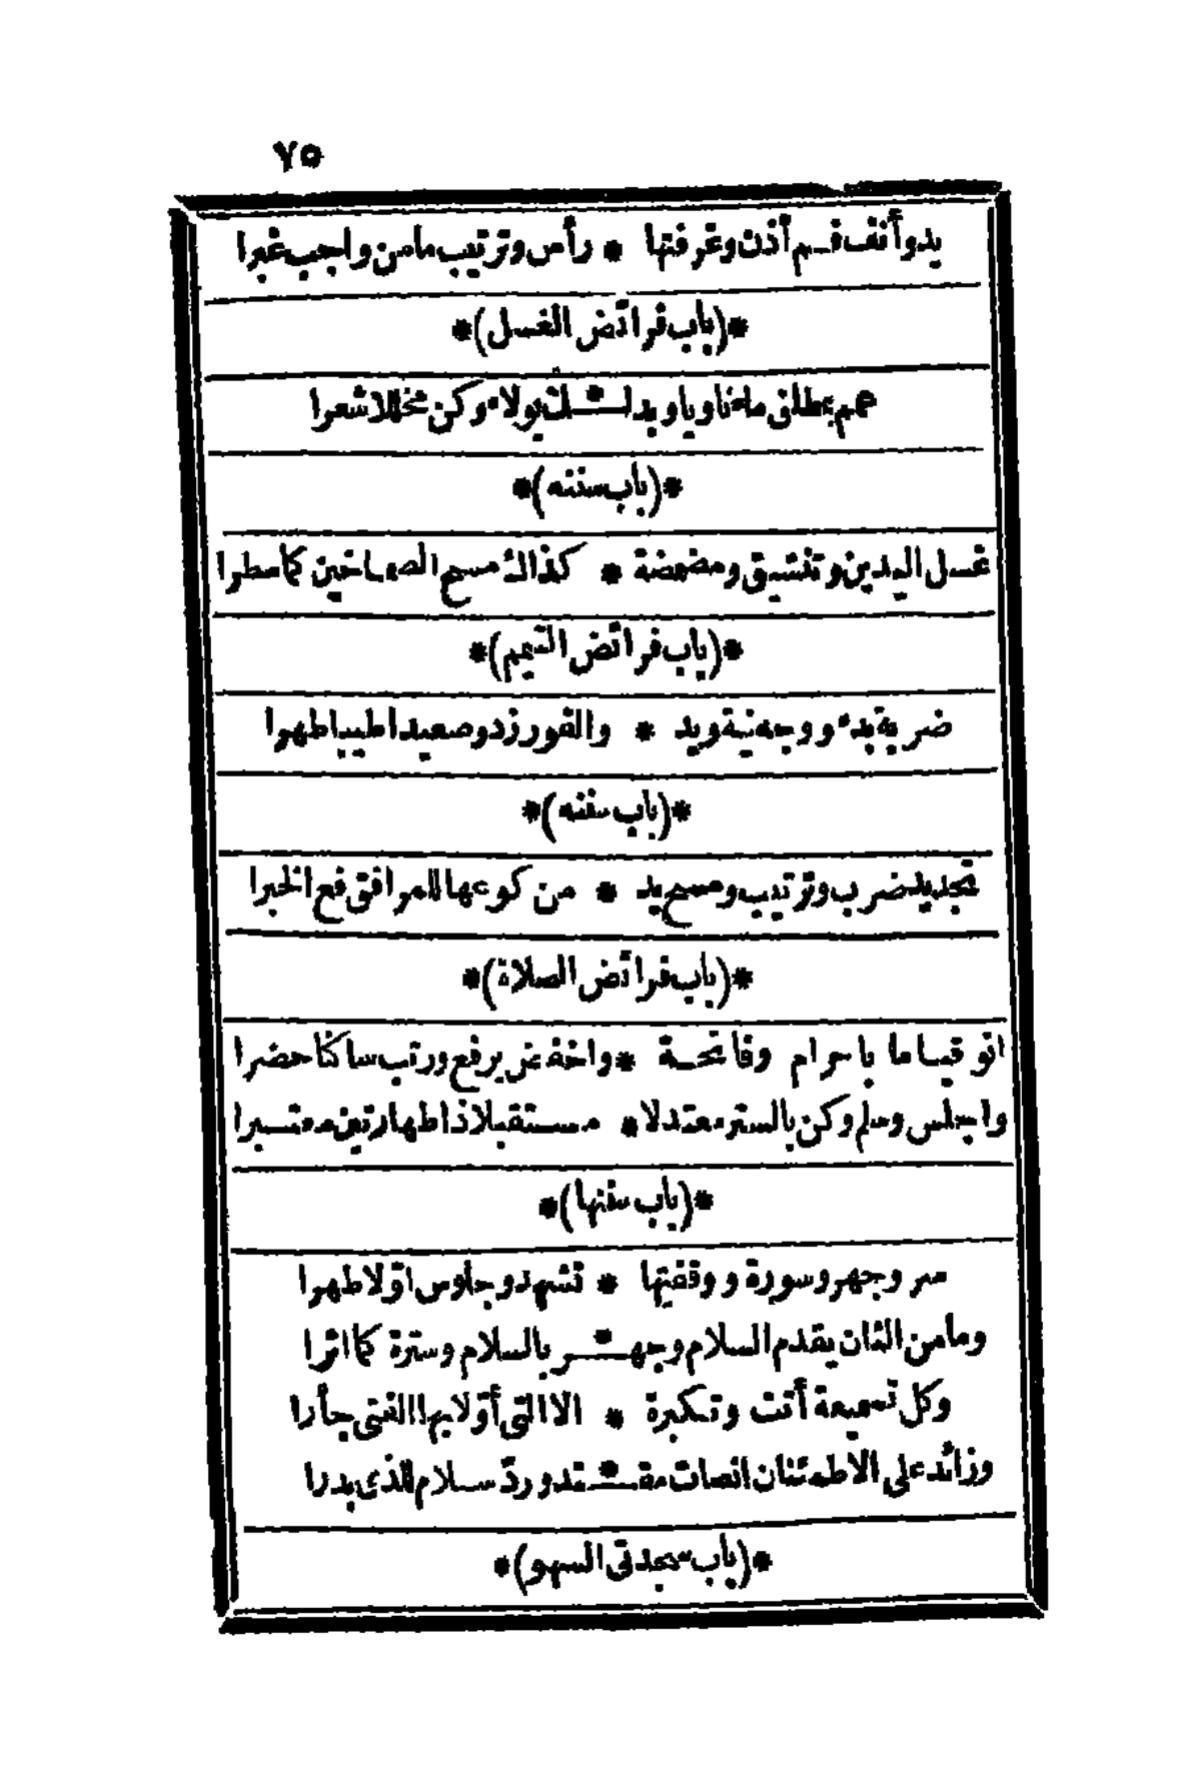 ٧٥
يد وأنف فم أذن وغرفتها * رأس وترتيب ما من واجب غبرا
*(باب فرائض الغسل)*
عمم بمطلق ماء ناويا وبدلـ * ـك بولاء وكن مخللا شعرا
*(باب سننه)*
غسل اليدين وتنشيق ومضمضة * كذاك مسح الصماخين كما سطرا
*(باب فرائض التيمم)*
ضربة بدء ووجه نية ويد * والفور زد وصعيدا طيبا طهرا
*(باب سننه)*
تجديد ضرب وترتيب ومسح يد * من كوعها للمرافق فع الخبرا
*(باب فرائض الصلاة)*
انو قياما با حرام وفاتحة * واخفض برفع ورتب ساكنا حضرا
واجلس وسلم وكن بالستر معتدلا * مستقبلا ذا طهارتين معتبرا
*(باب سننها)*
سر وجهر وسورة ووقفتها * تشهد وجلوس اوّلا طهرا
وما من الثان يقدم السلام وجهـ * ـر بالسلام وسترة كما اثرا
وكل تسميعة أتت وتكبرة * الا التي أوّلا بها الفتى جأرا
وزائد على الاطمئنان انصات مقـ * ـتد وردّ سلام للذى بدرا
*(باب سجدتى السهو)*